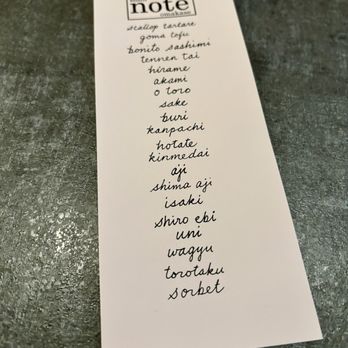 note
omakase
scallop tartare
goma tofu
bonito sashimi
tennen tai
hirame
akami
o toro
sake
buri
kanpachi
hotate
kinmedai
aji
shima aji
isaki
shiro ebi
uni
wagyu
torotaku
sorbet